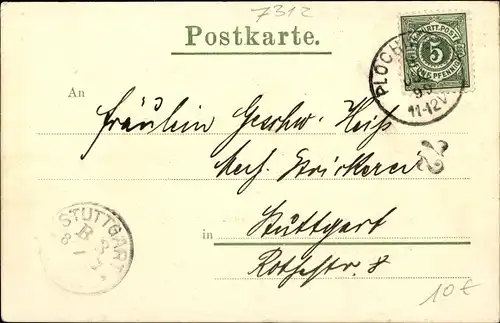 7312
Postkarte.
K. WÜRTT. POST
5
FÜNF PFENNIG
PLOCH
11-12V
An
Fräulein Geschw. Heiß
Mech. Strickerei
in Stuttgart
STUTTGART
B 3
8
10€